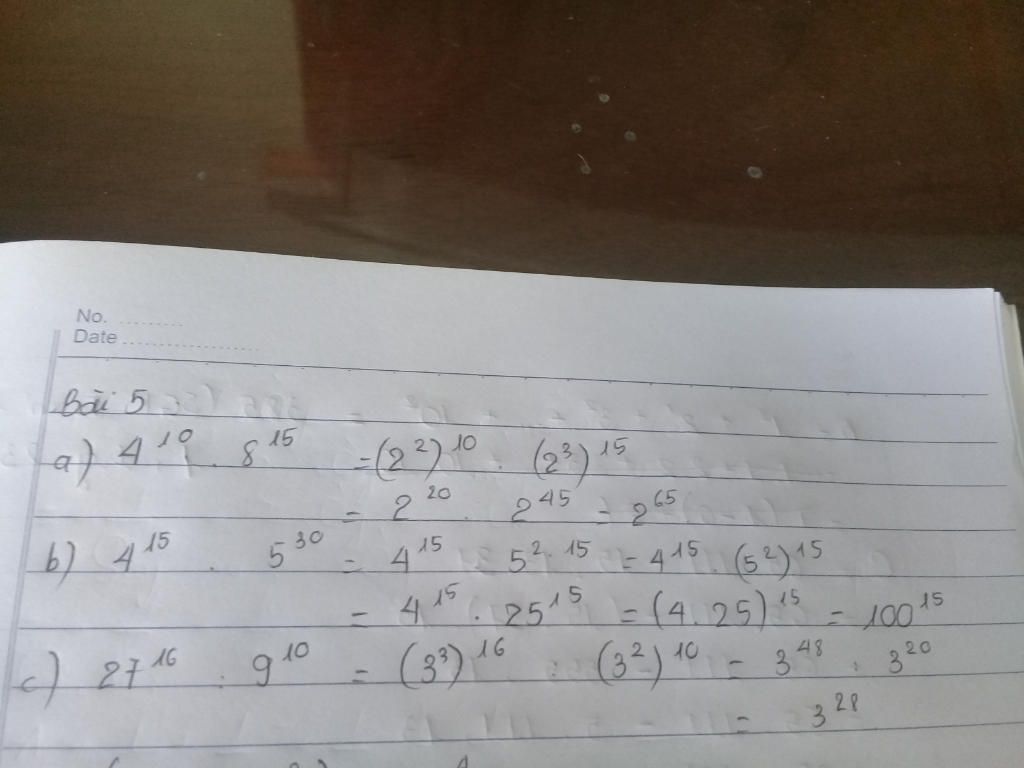 No. ..........
Date ....................
Bài 5
a) 4^10 . 8^15 = (2^2)^10 . (2^3)^15
= 2^20 . 2^45 = 2^65
b) 4^15 . 5^30 = 4^15 . 5^2.15 = 4^15 . (5^2)^15
= 4^15 . 25^15 = (4.25)^15 = 100^15
c) 27^16 : 9^10 = (3^3)^16 : (3^2)^10 = 3^48 : 3^20
= 3^28